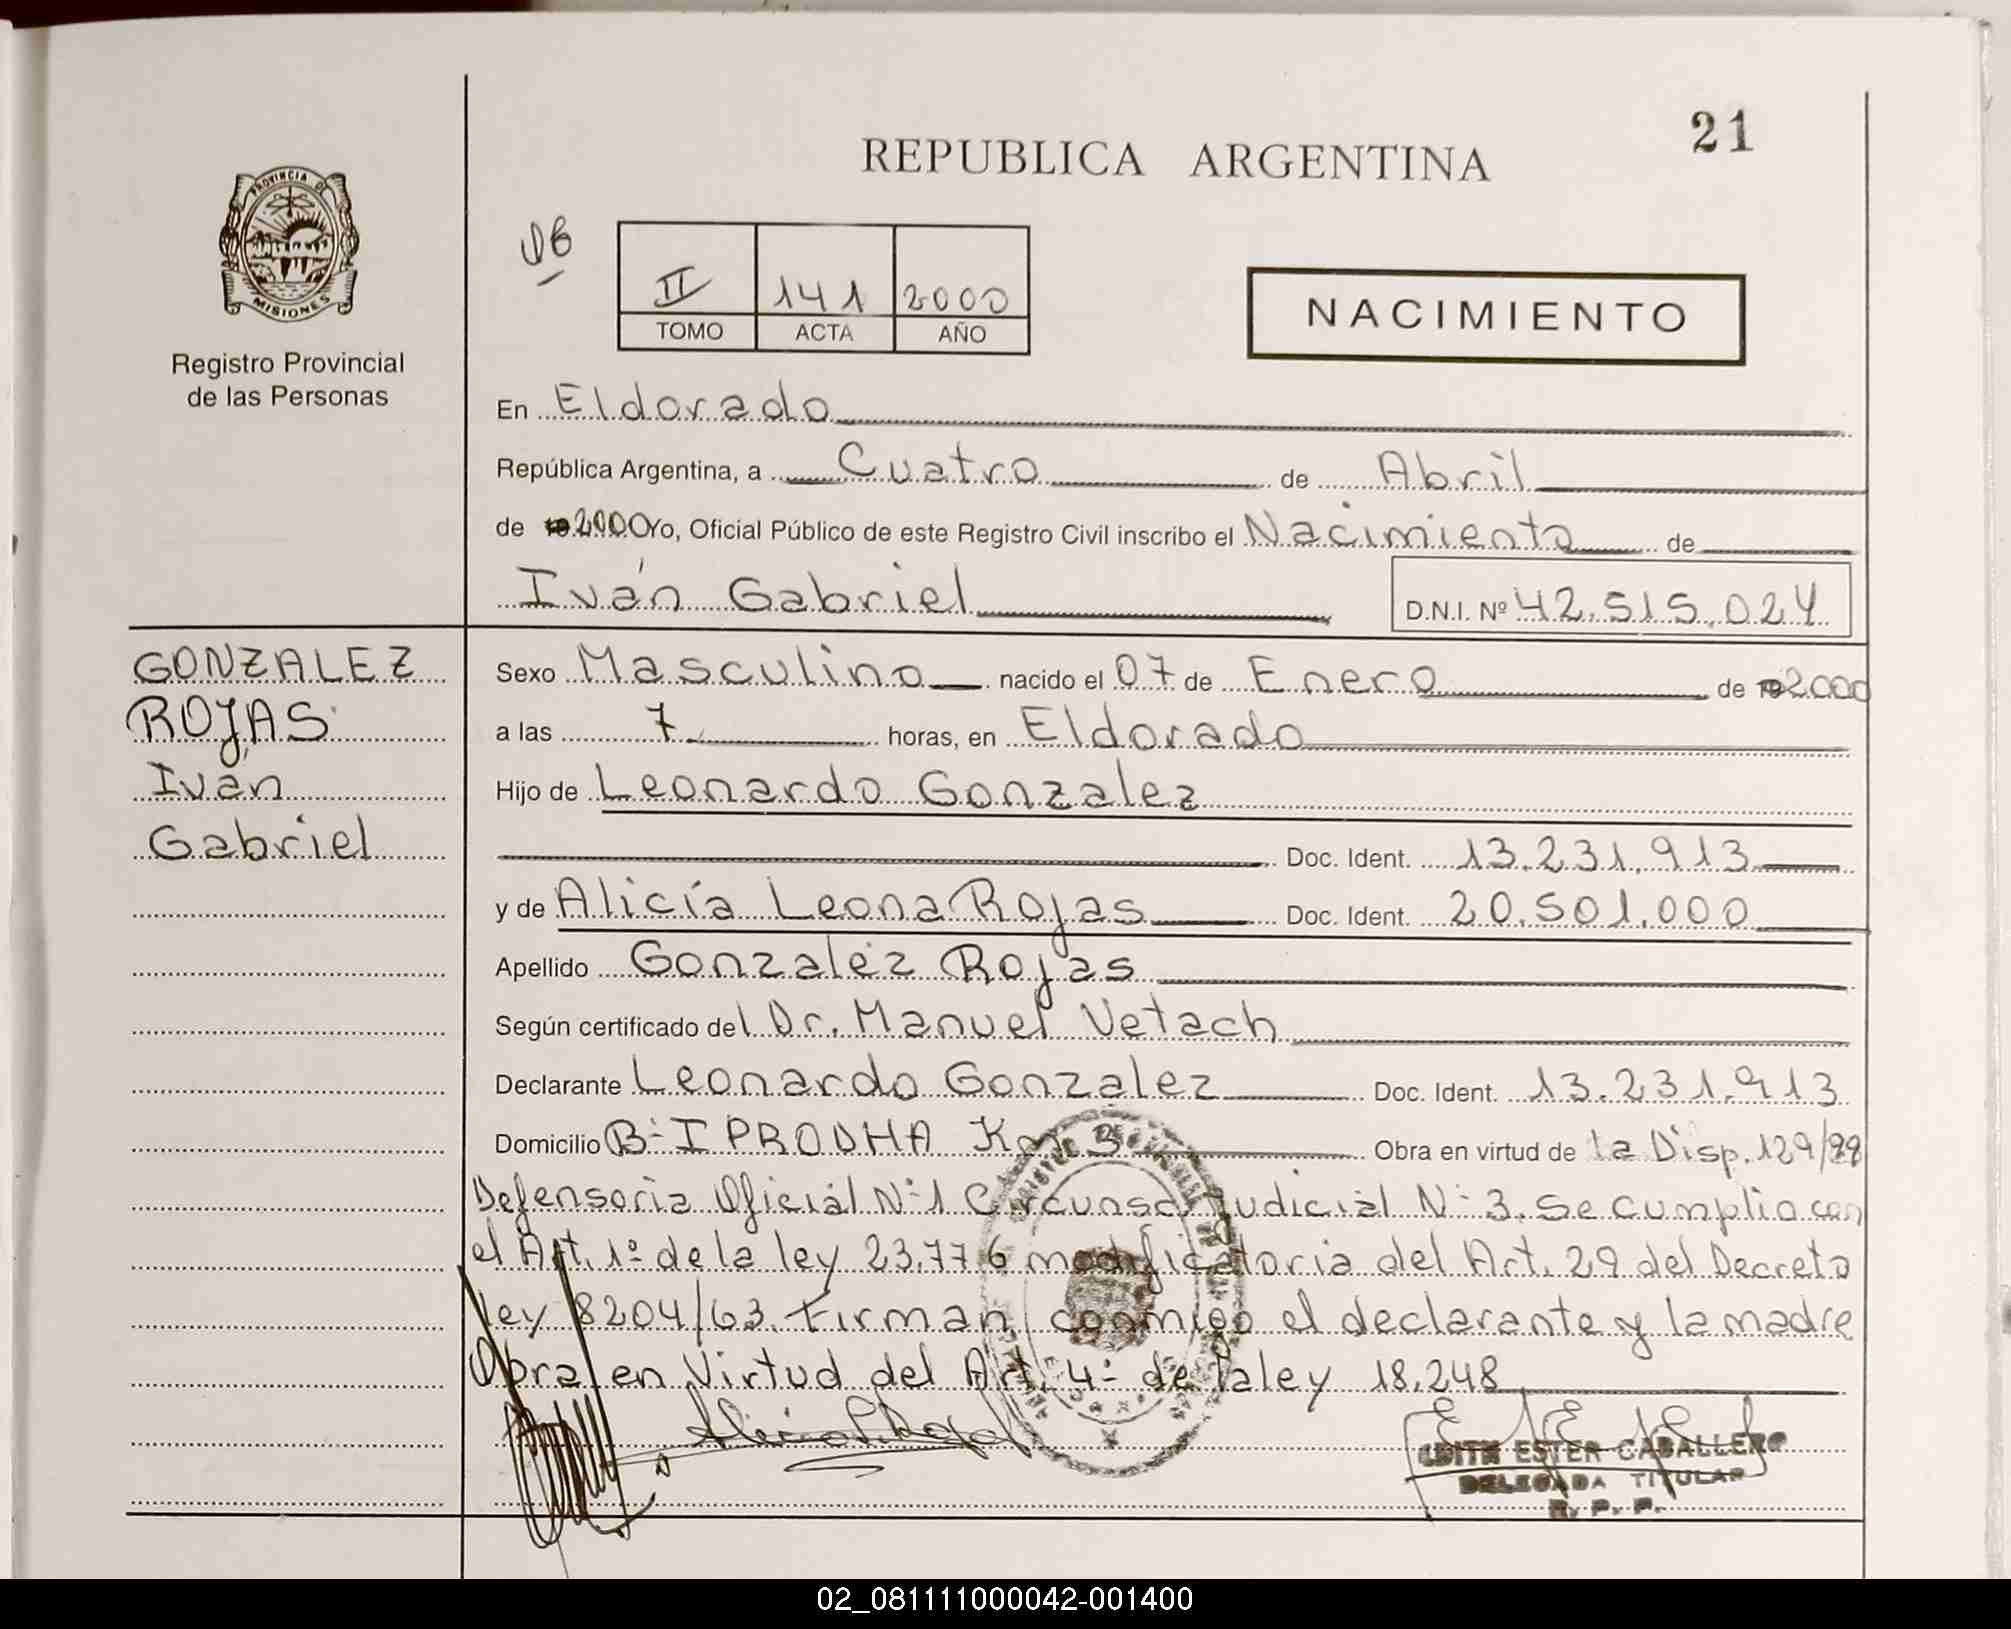 21
REPUBLICA ARGENTINA
PROVINCIA DE
MISIONES
Registro Provincial
de las Personas
06
II 141 2000
TOMO ACTA AÑO
NACIMIENTO
En Eldorado
República Argentina, a Cuatro de Abril
de 2000 Yo, Oficial Público de este Registro Civil inscribo el Nacimiento de
Iván Gabriel D.N.I. Nº 42.515.024
GONZALEZ
ROJAS
Iván
Gabriel
Sexo Masculino nacido el 07 de Enero de 2000
a las 7 horas, en Eldorado
Hijo de Leonardo Gonzalez
Doc. Ident. 13.231.913
y de Alicia Leona Rojas Doc. Ident. 20.501.000
Apellido Gonzalez Rojas
Según certificado del Dr. Manuel Vetach
Declarante Leonardo Gonzalez Doc. Ident. 13.231.913
Domicilio Bº IPRODHA Km 3 Obra en virtud de la Disp. 129/98
Defensoria Oficial Nº 1 Circunsc. Judicial Nº 3. Se cumplio con
el Art. 1º de la ley 23.776 modificatoria del Art. 29 del Decreto
ley 8204/63. Firman conmigo el declarante y la madre
Obra en Virtud del Art. 4º de la ley 18.248
EDITH ESTER CABALLERO
DELEGADA TITULAR
R. P. P.
02_081111000042-001400